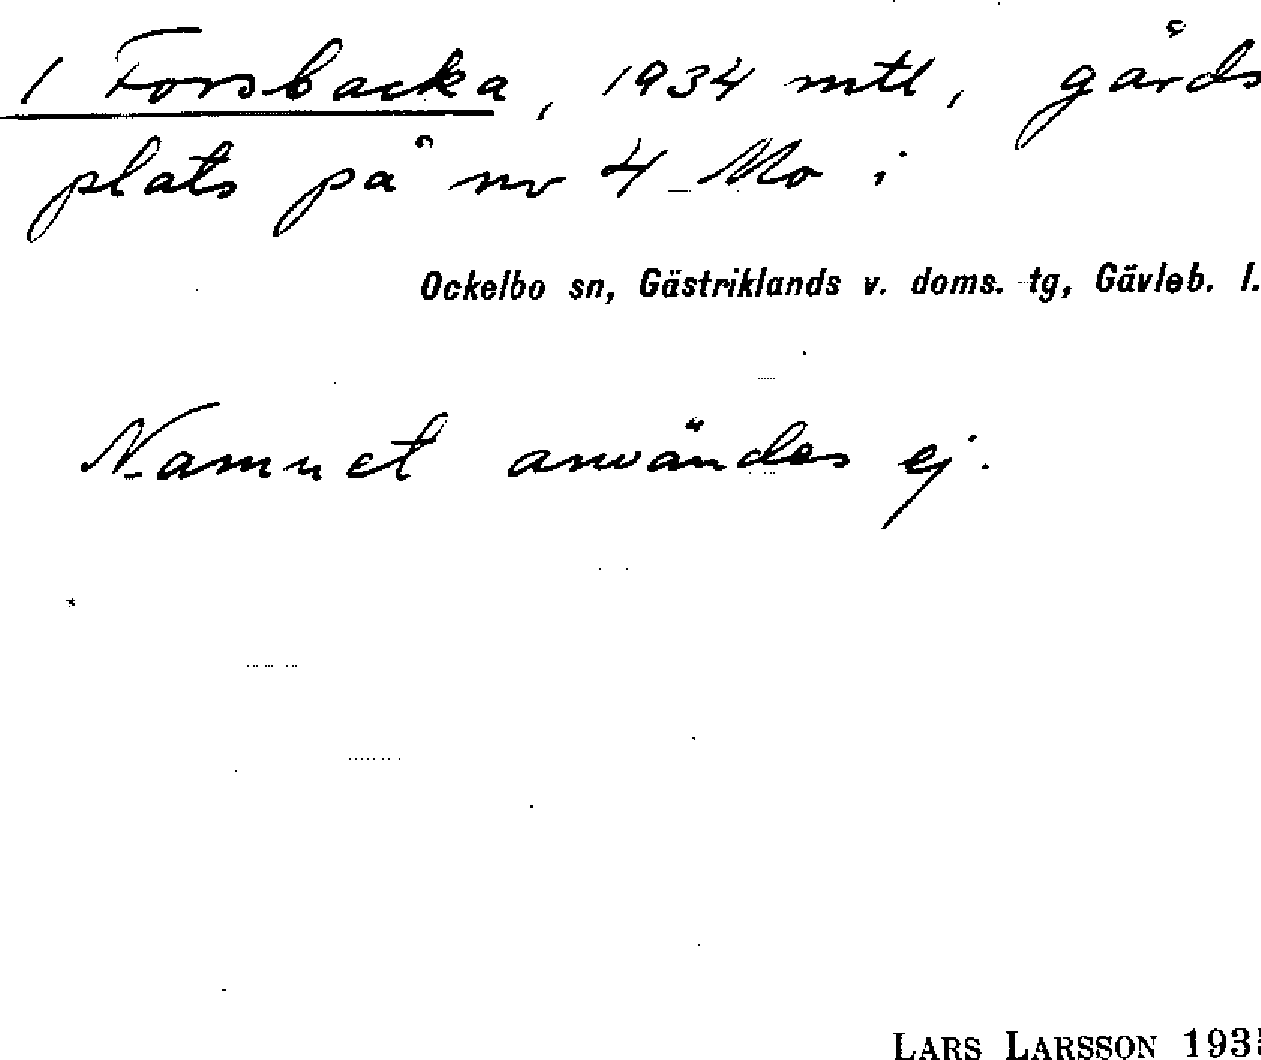 1 Forsbacka, 1934 mtl, gårds
plats på nr 4 Mo i
Ockelbo sn, Gästriklands v. doms. tg, Gävleb. l.
Namnet användes ej.
LARS LARSSON 193